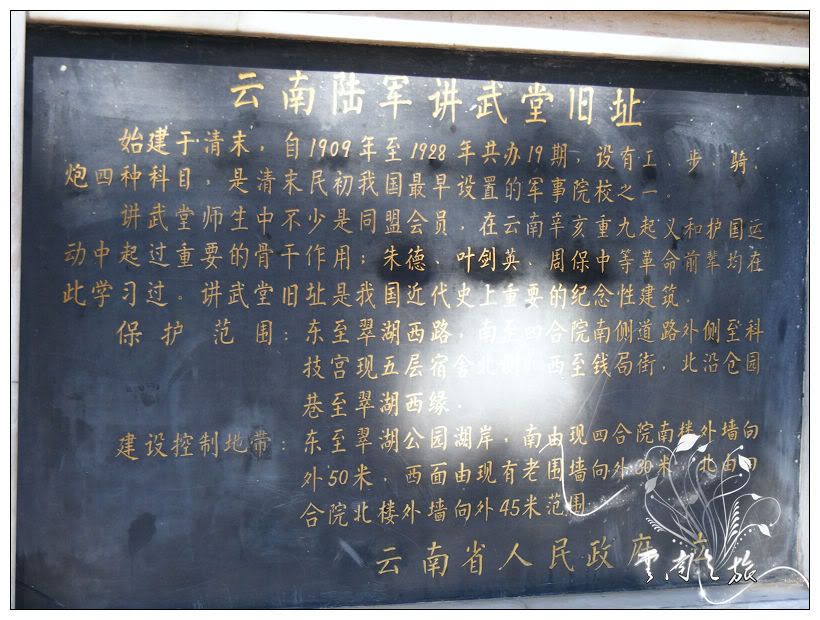 云南陆军讲武堂旧址
始建于清末，自1909年至1928年共办19期，设有工、步、骑、
炮四种科目，是清末民初我国最早设置的军事院校之一。
讲武堂师生中不少是同盟会员，在云南辛亥重九起义和护国运
动中起过重要的骨干作用；朱德、叶剑英、周保中等革命前辈均在
此学习过。讲武堂旧址是我国近代史上重要的纪念性建筑。
保护范围：东至翠湖西路，南至四合院南侧道路外侧至科
技宫现五层宿舍北侧，西至钱局街，北沿仓园
巷至翠湖西缘．
建设控制地带：东至翠湖公园湖岸，南由现四合院南楼外墙向
外50米，西面由现有老围墙向外30米，北由四
合院北楼外墙向外45米范围
云南省人民政府 立
云南之旅